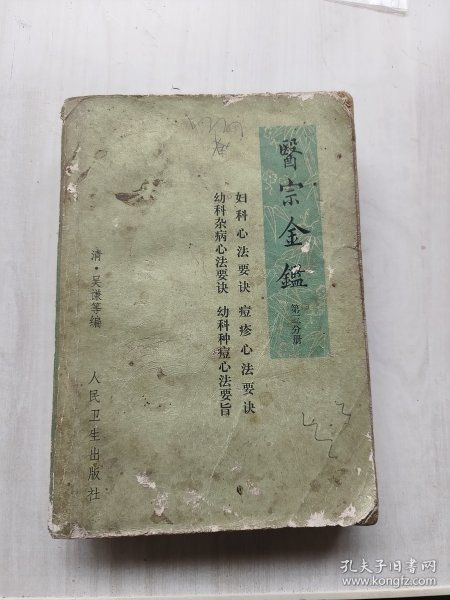 醫宗金鑑
第三分册
妇科心法要诀 痘疹心法要诀
幼科杂病心法要诀 幼科种痘心法要旨
清·吴谦等编
人民卫生出版社
孔夫子旧书网
www.kongfz.com